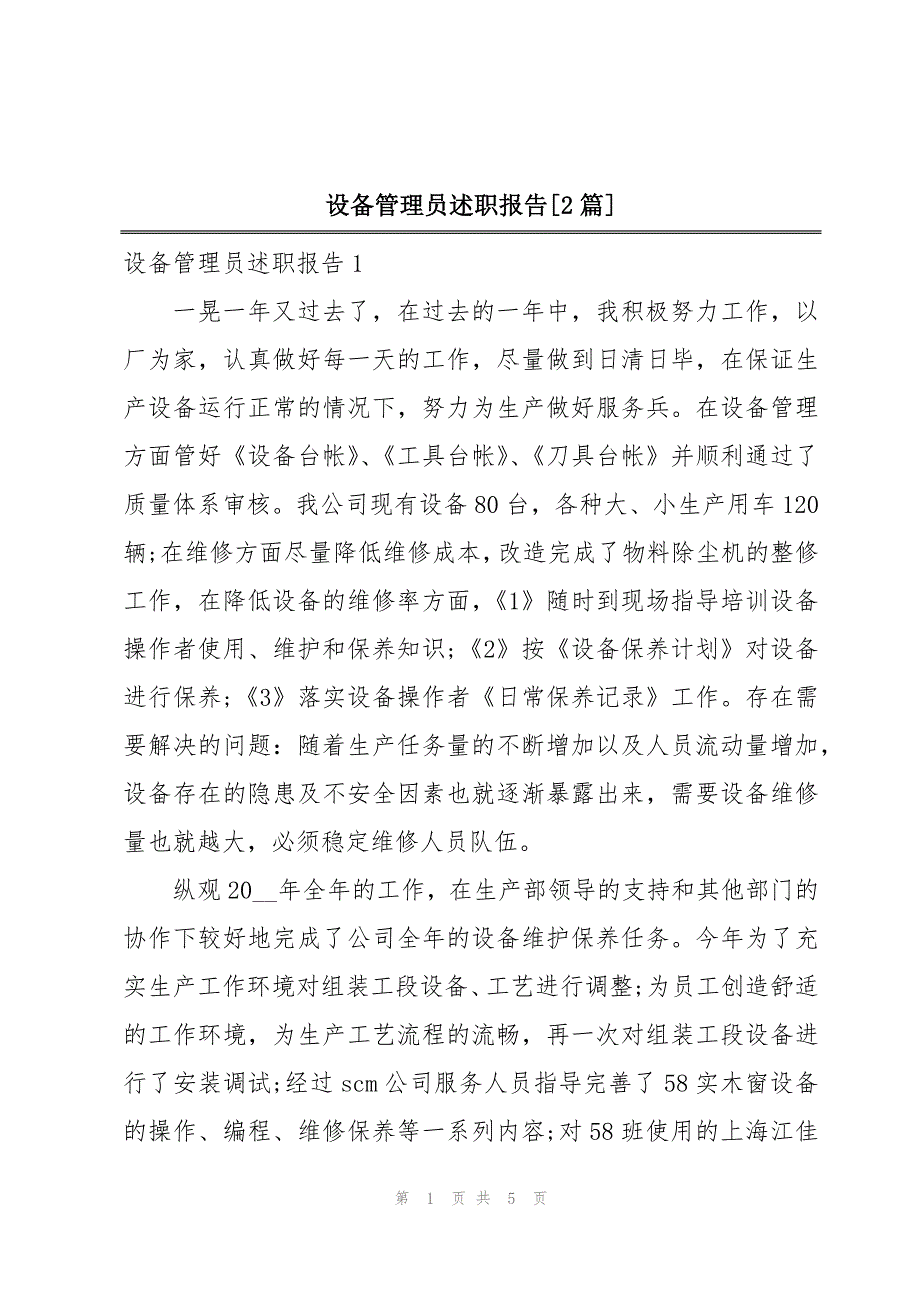 设备管理员述职报告[2篇]
设备管理员述职报告1
一晃一年又过去了，在过去的一年中，我积极努力工作，以
厂为家，认真做好每一天的工作，尽量做到日清日毕，在保证生
产设备运行正常的情况下，努力为生产做好服务兵。在设备管理
方面管好《设备台帐》、《工具台帐》、《刀具台帐》并顺利通过了
质量体系审核。我公司现有设备80台，各种大、小生产用车120
辆;在维修方面尽量降低维修成本，改造完成了物料除尘机的整修
工作，在降低设备的维修率方面，《1》随时到现场指导培训设备
操作者使用、维护和保养知识;《2》按《设备保养计划》对设备
进行保养;《3》落实设备操作者《日常保养记录》工作。存在需
要解决的问题：随着生产任务量的不断增加以及人员流动量增加，
设备存在的隐患及不安全因素也就逐渐暴露出来，需要设备维修
量也就越大，必须稳定维修人员队伍。
纵观20__年全年的工作，在生产部领导的支持和其他部门的
协作下较好地完成了公司全年的设备维护保养任务。今年为了充
实生产工作环境对组装工段设备、工艺进行调整;为员工创造舒适
的工作环境，为生产工艺流程的流畅，再一次对组装工段设备进
行了安装调试;经过scm公司服务人员指导完善了58实木窗设备
的操作、编程、维修保养等一系列内容;对58班使用的上海江佳
第 1 页 共 5 页